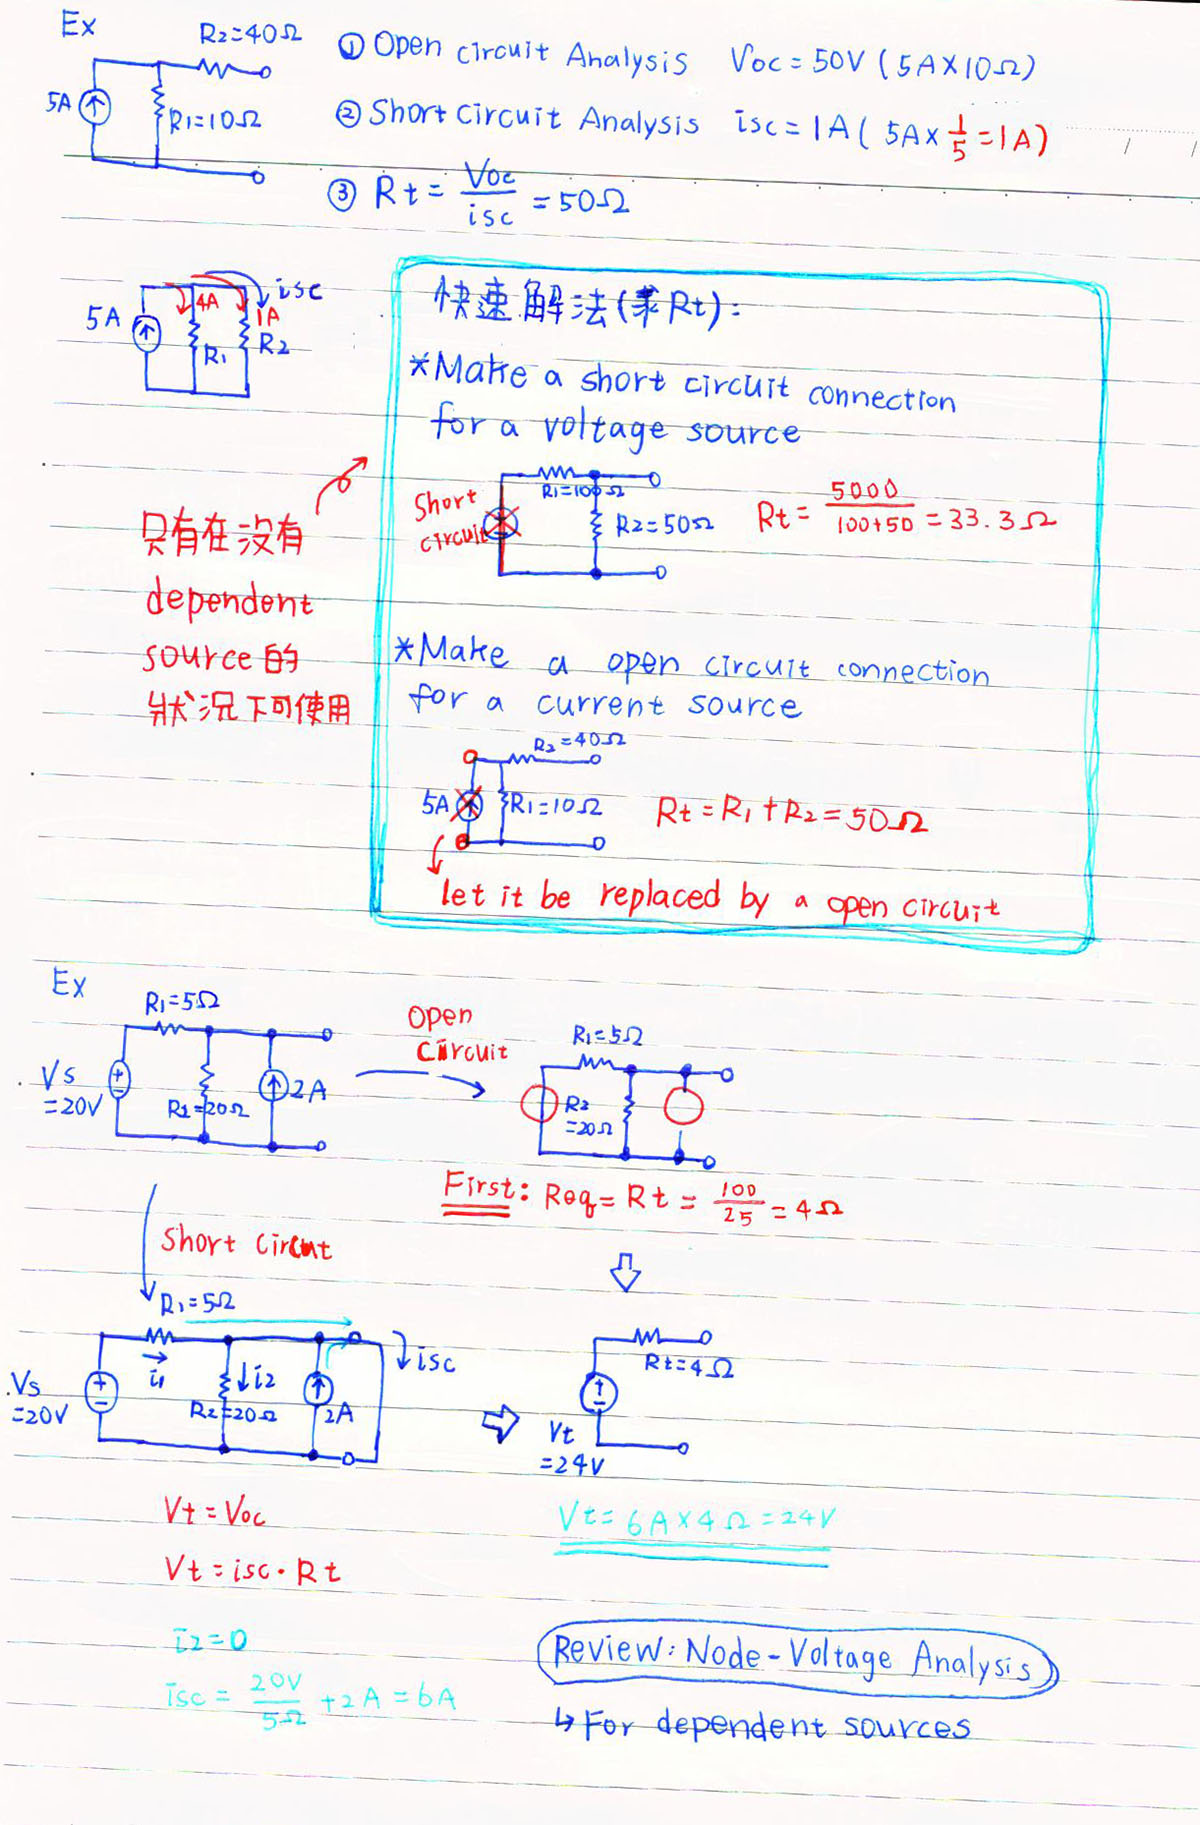 Ex
R2=40Ω
5A
R1=10Ω
① Open circuit Analysis Voc=50V (5A×10Ω)
② Short circuit Analysis isc=1A( 5A× 1/5 =1A)
③ Rt= Voc/isc =50Ω
5A
4A
isc
1A
R1
R2
快速解法(求Rt):
*Make a short circuit connection
for a voltage source
Short
circuit
R1=100Ω
R2=50Ω
Rt= 5000/100+50 =33.3Ω
只有在沒有
dependent
source的
狀況下可使用
*Make a open circuit connection
for a current source
R2=40Ω
5A
R1=10Ω
Rt=R1+R2=50Ω
let it be replaced by a open circuit
Ex
R1=5Ω
Vs
=20V
R2=20Ω
2A
Open
Circuit
R1=5Ω
R2
=20Ω
First: Req= Rt = 100/25 =4Ω
Short circuit
R1=5Ω
i1
i2
isc
Vs
=20V
R2=20Ω
2A
Rt=4Ω
Vt
=24V
Vt=Voc
Vt=isc·Rt
Vt=6A×4Ω=24V
i2=0
isc= 20V/5Ω +2A=6A
Review: Node-Voltage Analysis
↳For dependent sources